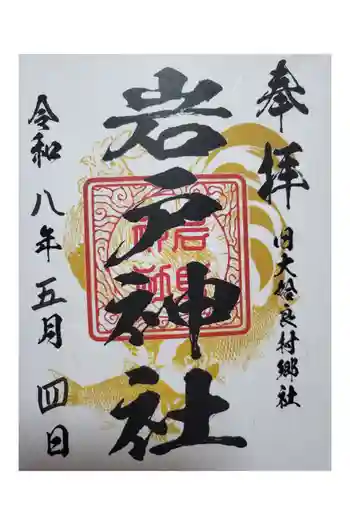 奉拝
旧大合良村郷社
岩戸神社
令和八年五月四日